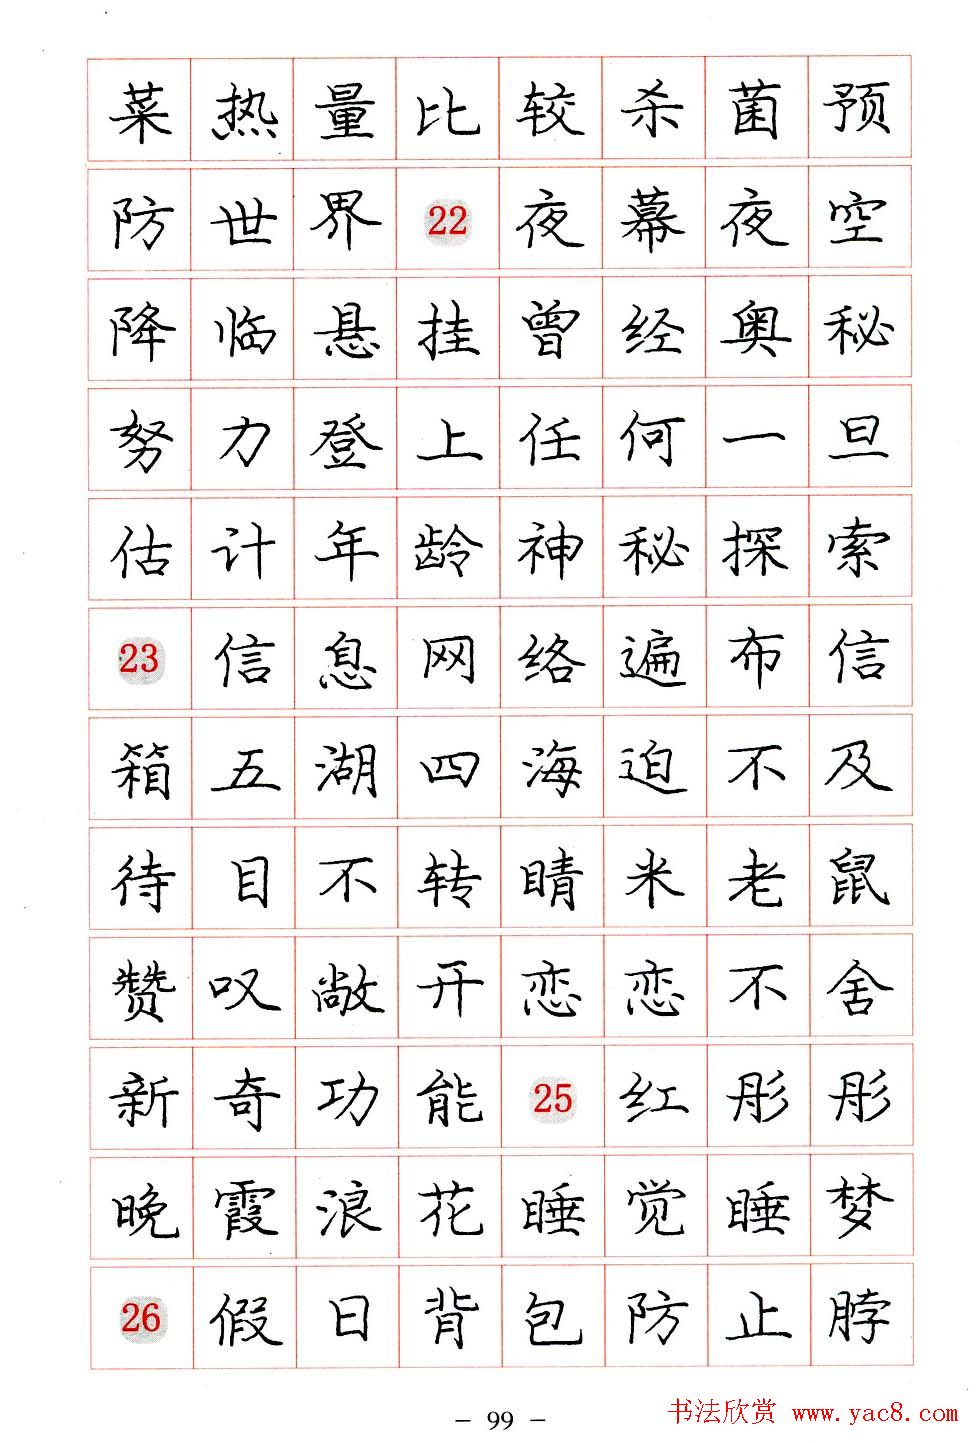 菜热量比较杀菌预
防世界22夜幕夜空
降临悬挂曾经奥秘
努力登上任何一旦
估计年龄神秘探索
23信息网络遍布信
箱五湖四海迫不及
待目不转睛米老鼠
赞叹敞开恋恋不舍
新奇功能25红彤彤
晚霞浪花睡觉睡梦
26假日背包防止脖
- 99 -
书法欣赏 www.yac8.com